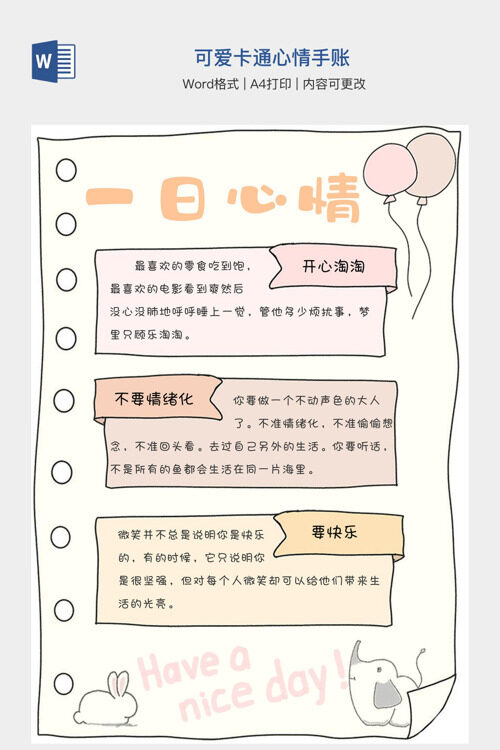 W
可爱卡通心情手账
Word格式 | A4打印 | 内容可更改
一日心情
开心淘淘
最喜欢的零食吃到饱，
最喜欢的电影看到爽然后
没心没肺地呼呼睡上一觉，管他多少烦扰事，梦
里只顾乐淘淘。
不要情绪化
你要做一个不动声色的大人
了。不准情绪化，不准偷偷想
念，不准回头看。去过自己另外的生活。你要听话，
不是所有的鱼都会生活在同一片海里。
要快乐
微笑并不总是说明你是快乐
的，有的时候，它只说明你
是很坚强，但对每个人微笑却可以给他们带来生
活的光亮。
Have a
nice day!